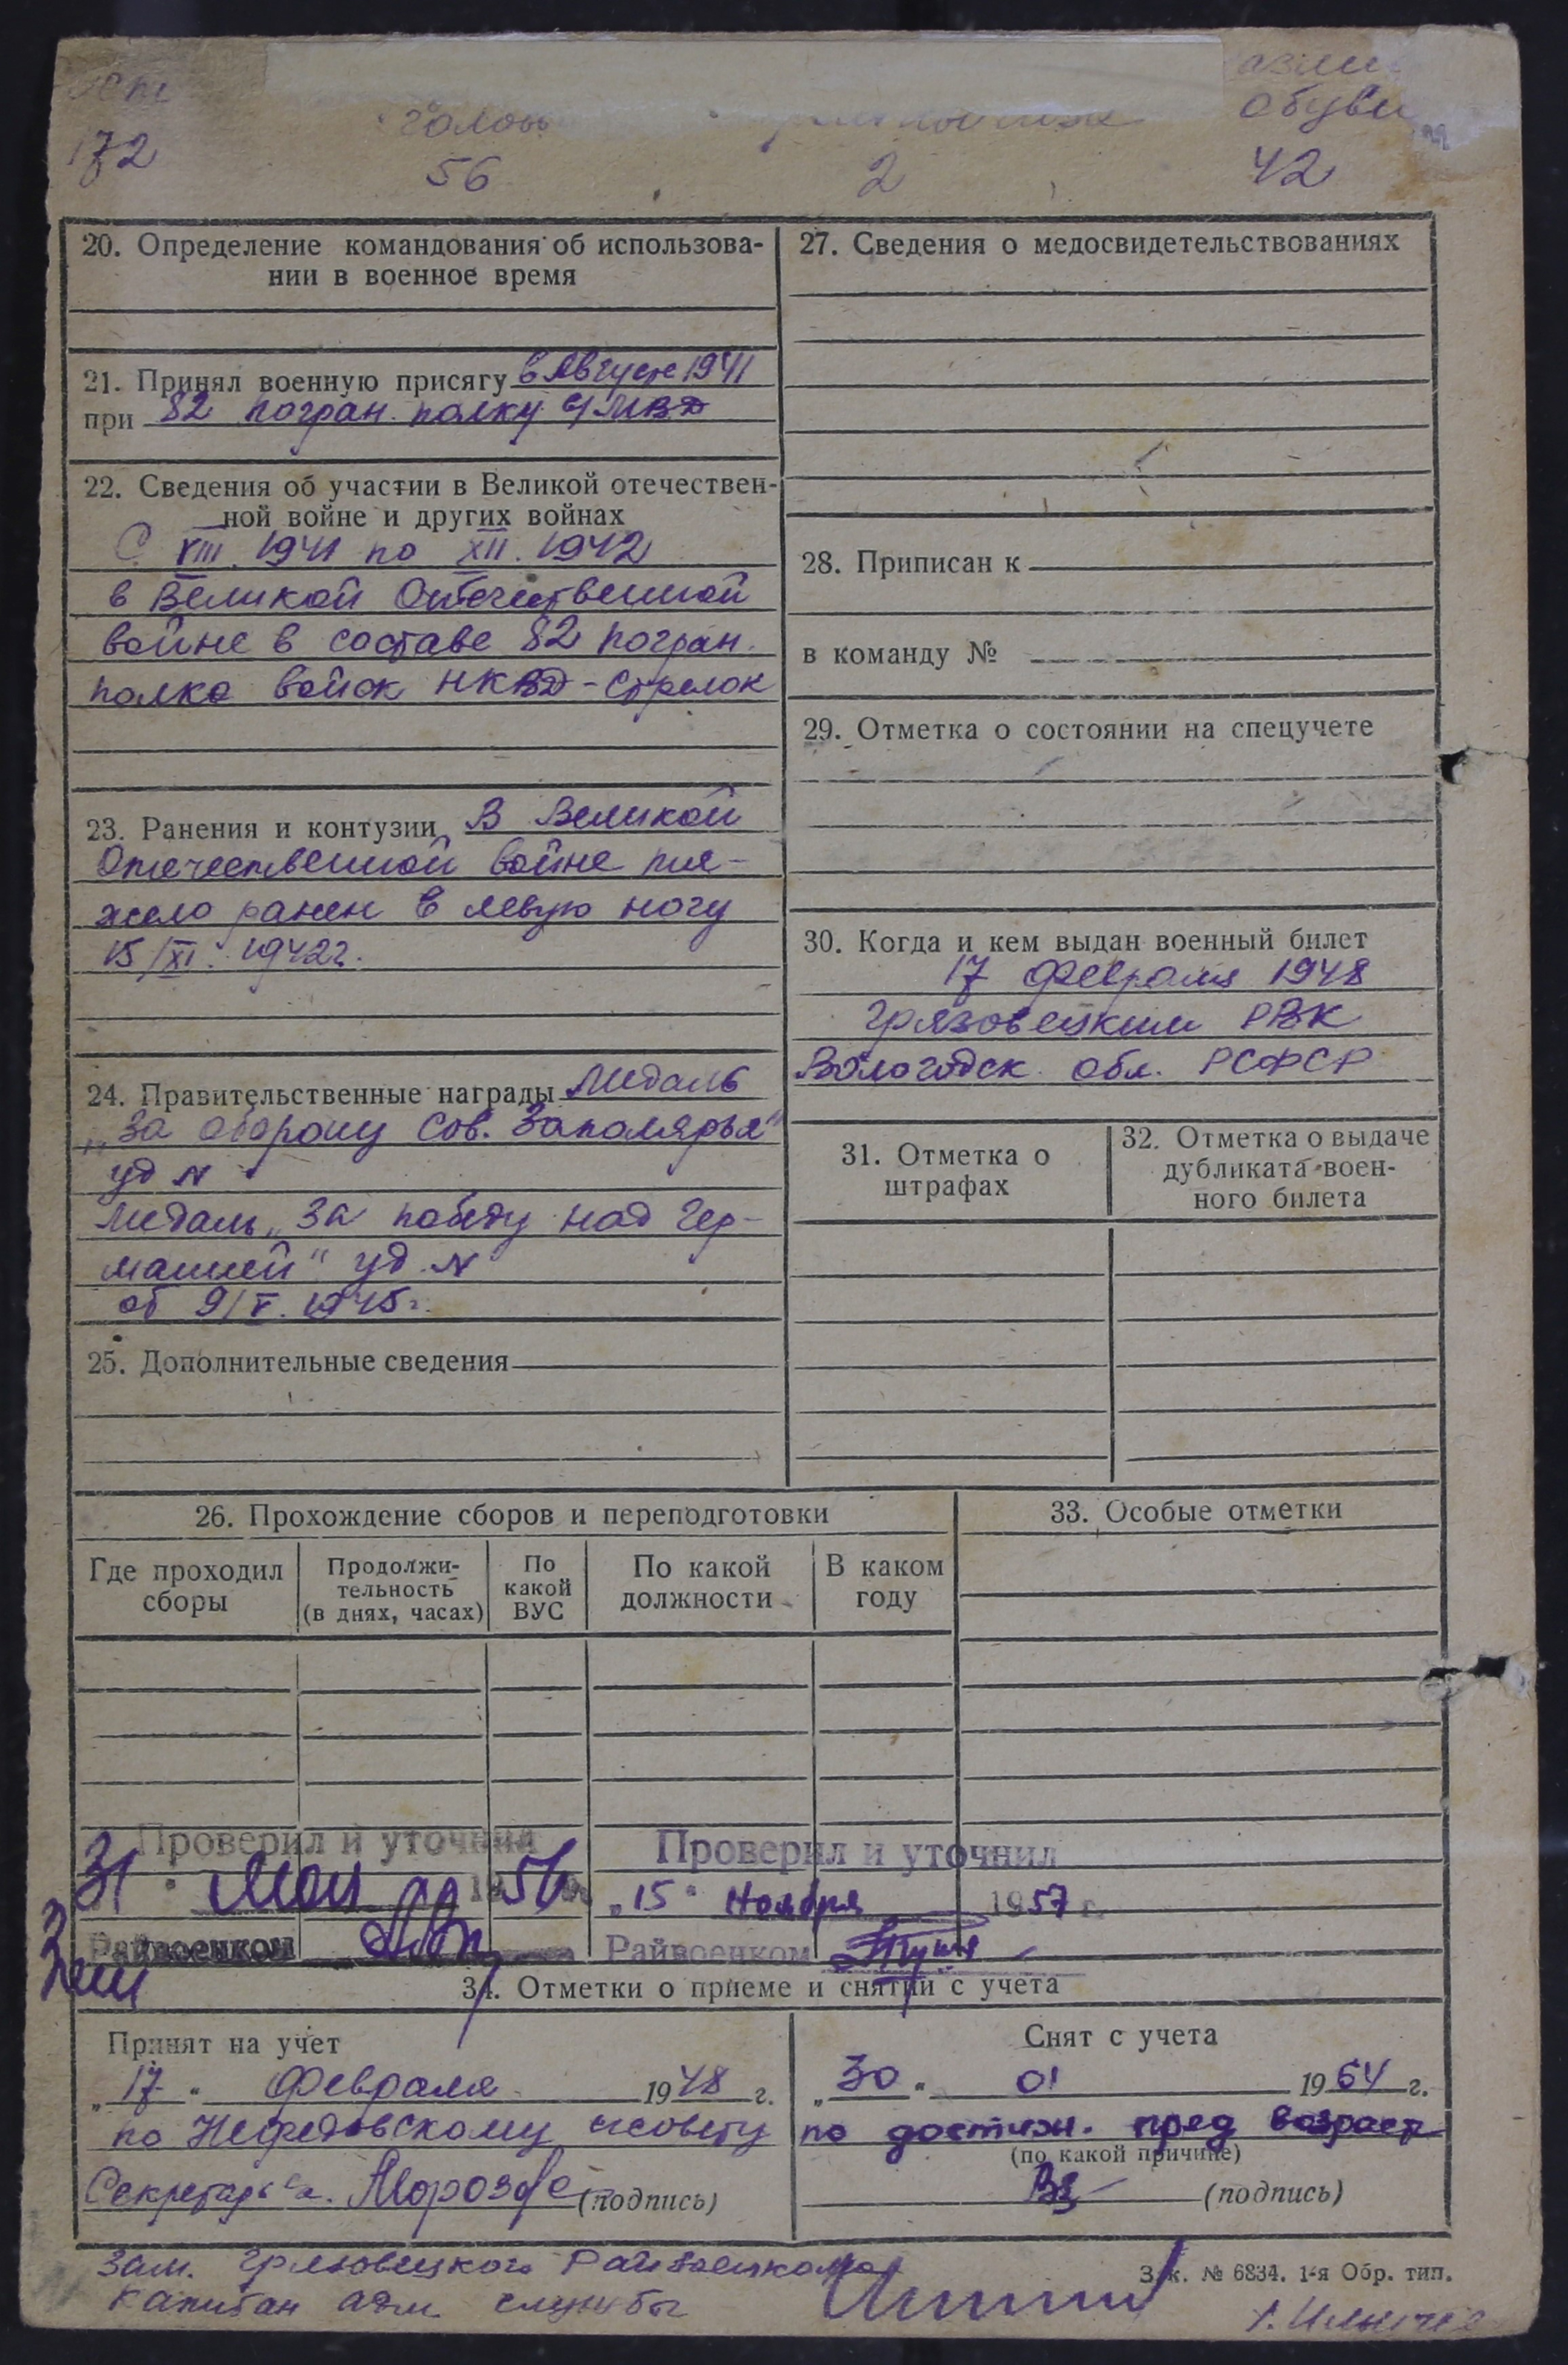 голов
обуви
172
56
2
42
20. Определение командования об использова-
нии в военное время
21. Принял военную присягу в Августе 1941
при 82 погран. полку МВД
22. Сведения об участии в Великой отечествен-
ной войне и других войнах
С VIII. 1941 по XII. 1942
в Великой Отечественной
войне в составе 82 погран.
полка войск НКВД - стрелок
23. Ранения и контузии В Великой
Отечественной войне тя-
жело ранен в левую ногу
15/XI. 1942г.
24. Правительственные награды Медаль
„За оборону Сов. Заполярья"
уд N
медаль „За победу над Гер-
манией" уд. N
от 9/V. 1945г.
25. Дополнительные сведения
27. Сведения о медосвидетельствованиях
28. Приписан к
в команду №
29. Отметка о состоянии на спецучете
30. Когда и кем выдан военный билет
17 февраля 1948
Грязовецким РВК
Вологодск. обл. РСФСР
31. Отметка о
штрафах
32. Отметка о выдаче
дубликата воен-
ного билета
26. Прохождение сборов и переподготовки
Где проходил
сборы
Продолжи-
тельность
(в днях, часах)
По
какой
ВУС
По какой
должности
В каком
году
33. Особые отметки
Проверил и уточнил
31 " мая 1956
Райвоенком
Проверил и уточнил
„15" Ноября 1957 г.
Райвоенком
34. Отметки о приеме и снятии с учета
Принят на учет
„17" февраля 1948 г.
по Нефедовскому с/совету
Секретарь Морозов
(подпись)
Снят с учета
„30" 01 1964 г.
по достиж. пред возраст
(по какой причине)
(подпись)
Зам. Грязовецкого Райвоенкома
капитан адм. службы
Зак. № 6834. 1-я Обр. тип.